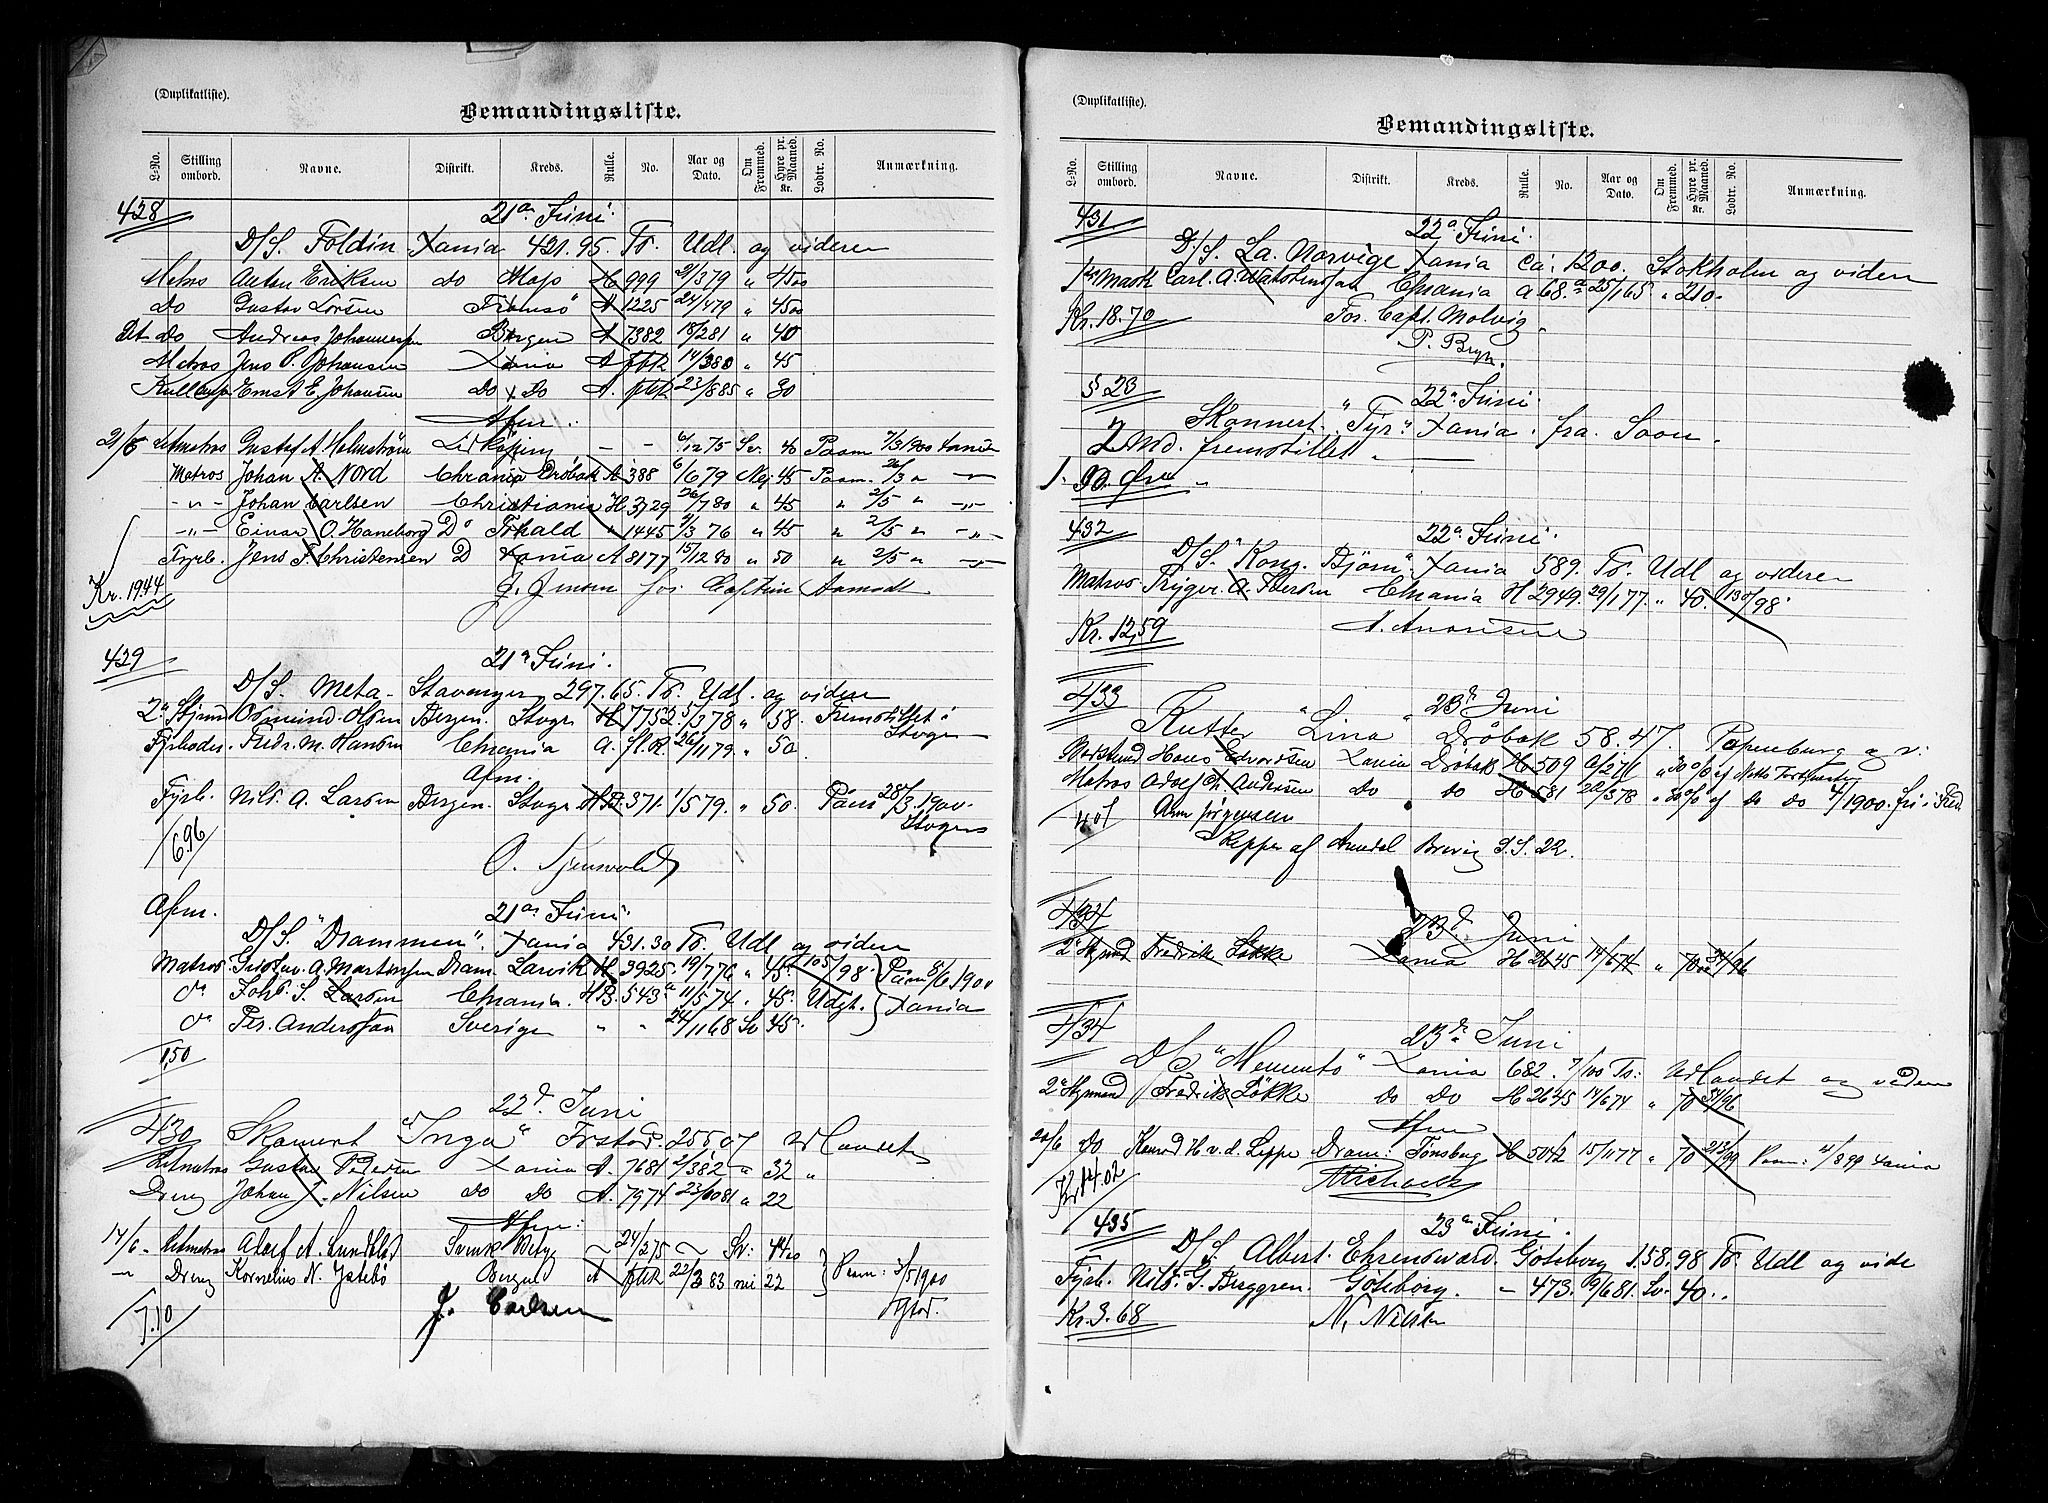 (Duplikatliste).
Bemandingsliste.
L-No. Stilling ombord. Navne. Distrikt. Kreds. Rulle. No. Aar og Dato. Om Fremmed. Hyre pr. Maaned. Kr. Lodtr. No. Anmærkning.
428 21de Juni.
D/S. Foldin Xania 421.95. Ts. Udl. og videre
Matros Anton Eriksen do H 999 2/3 79 " 45 00
Do Gustav Larsen Tromsö A 1225 24/4 79 " 45 00
Lt. Do Andreas Johannesen Bergen A 7382 18/2 81 " 40
Matros Jens P. Johansen Xania A fllR 14/3 80 " 45
Kullemp Ernst E. Johansen do Do A. fllR 23/8 85 " 30
Afm.
21/6 Letmatros Gustaf A. Holmström Lidköping - - 6/12 75 Sv. 40 Paam 7/3 1900 Xania
Matros Johan A. Nord Chrania Dröbak A 388 6/6 79 Nei 45 Paam. 26/3 " -"-
-"- Johan Carlsen Christiania H 3729 26/7 80 " 45 " 2/5 " -"-
-"- Einar O. Haneborg Do Frhald " 1445 4/3 76 " 45 " 2/5 " -"-
Fyrb. Jens F. Christensen D Xania A 8177 15/12 80 " 50 " 2/5 " -"-
Kr. 19.44 J. Jensen for Captein Aamodt
429 21de Juni.
D/S. Meta - Stavanger 297.65. Ts. Udl. og videre
2n Stjrmd Osmund Olsen Bergen. Stvgr H 7752 5/3 78 " 58. Fremstillet i Stvgr
Fyrböder. Fredr. M. Hansen Chrania A. fl.R. 26/11 79 " 50.
Afm.
Fyrb. Nils A. Larsen Bergen. Stvgr H.B. 371. 1/5 79. " 50. Paam 28/3 1900. Stvgr
6.96
O. Tjensvold
Afm. 21de Juni.
D/S. "Drammen". Xania 431.30 Ts. Udl og videre
Matros Gustav. A. Martinsen Dram. Larvik H 3925. 19/7 76 " 45. 105/98 Paam 8/6 1900
do Johs. S. Larsen Chrania. H.B. 543a 11/5 74. " 45. Udgt. Xania
do Per. Andersson Sverige " " 24/11 68 Sv 45.
1.50
22d. Juni
430 Skonnert "Inga" Frstad. 255.07 Udlandet
Letmatros Gustav Pedersen Xania A. 7681 2/3 82 " 32 "
Dreng Johan J. Nilsen do do A. 7974 22/10 81 " 22
Afm:
14/6 - Letmatros Alolf A. Lundblad Svensk Betyg ~ 24/2 75 ~ Sv: 44 00
-"- Dreng Kornelius N. Ystebö Bergen A fllR 22/3 83 nei 22 Paam: 3/5 1900
Frstad.
7.10 J. Carlsen
(Duplikatliste).
Bemandingsliste.
L-No. Stilling ombord. Navne. Distrikt. Kreds. Rulle. No. Aar og Dato. Om Fremmed. Hyre pr. Maaned. Kr. Lodtr. No. Anmærkning.
431 22de Juni.
D/S. La Norvige Xania Ca: 1200. Stokholm og videre
1ste Mask Carl. A. Chrania A 68.a 25/1 65 " 210.
Kr. 18.70 For Capt. Molvig.
P. Bryn.
§ 23 22de Juni.
Skonnert "Tyr" Xania. fra. Soon.
2 Md. fremstillet
1. 90. Öre "
432 22de Juni.
D/S "Kong. Bjørn". Xania 589. Ts. Udl og videre
Matros Trygve. A. Iversen Chrania H 2949. 29/1 77. " 40. 130/98
Kr. 12,59 A. Anonsen
433 23de Juni
Kutter "Lina" Dröbak 58.47. Papenburg o. v.
Bedstmd Hans Edvardsen Xania Dröbak H 509 6/2 71 " 30 0/0 af Netto Fortjeneste
Matros Adolf Ch. Andersen Do do H 581 22/3 78 " 30 0/0 af do do 4/1900. fri i Fred
1.01 Ann Jörgensen
Skipper af Arendal Brevig S.S. 22.
434 23de Juni
2n Stymand Fredrik Løkke Xania H 2645 14/6 74 " 70 24/96
434 23de Juni
D/S "Memento" Xania 682. 7/100 Ts: Udlandet og videre
2n Stymand Fredrik Løkke do do H 2645 14/6 74 " 70 24/96
Afm
20/6 Do Konrad H. v. d. Lippe Dram: Tönsberg H 5042 15/11 77 " 70 213/99 Paam: 4/8 99 Xania
Kr 14.02
435 23de Juni.
D/S. Albert. Ehrensward. Göteborg 158,98 Ts. Udl og vide
Fyrb. Nils. G. Berggren. Göteborg. - 473. 19/6 81. Sv. 40..
Kr. 3.68 N. Nilsen